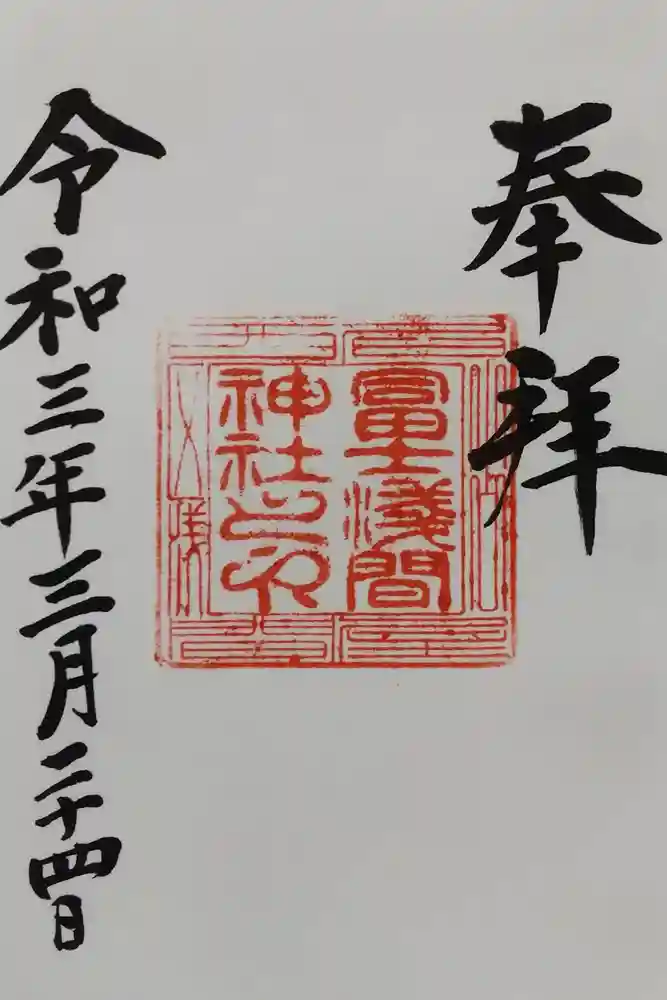 奉拝
富士浅間
神社之印
令和三年三月二十四日